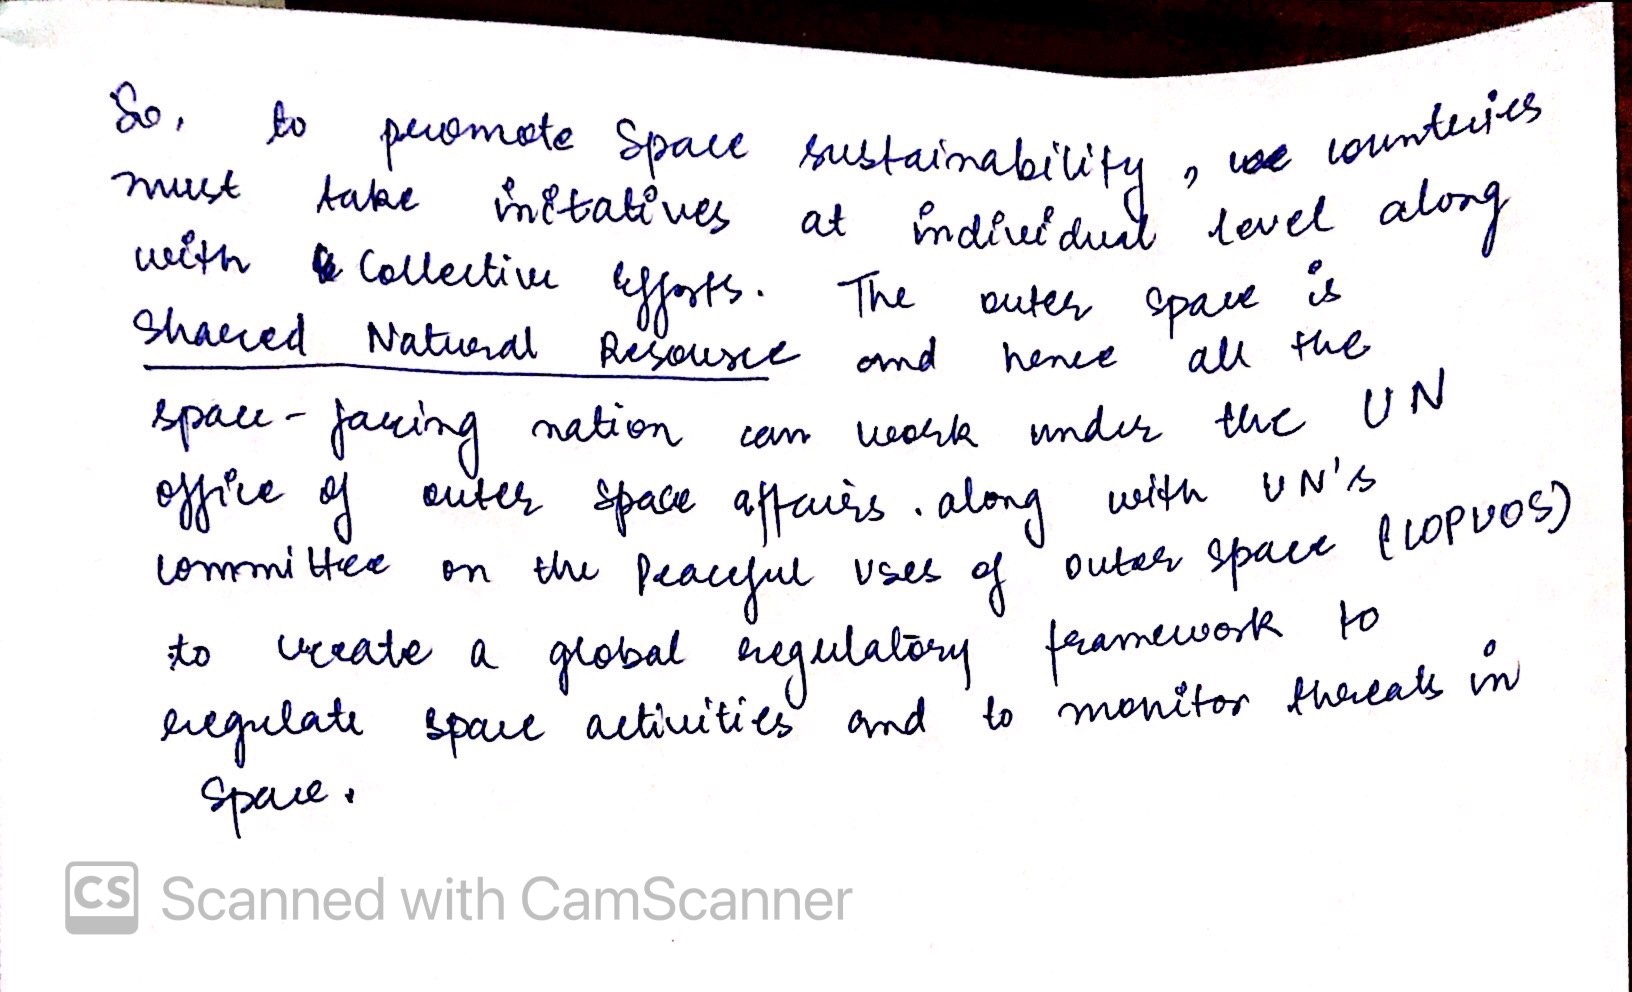 So, to promote Space sustainability, countries
must take initatives at individual level along
with Collective Efforts. The outer space is
Shared Natural Resource and hence all the
space-faring nation can work under the UN
office of outer space affairs. along with UN's
committee on the Peaceful Uses of outer space (COPUOS)
to create a global regulatory framework to
regulate space activities and to monitor threats in
Space.
CS Scanned with CamScanner